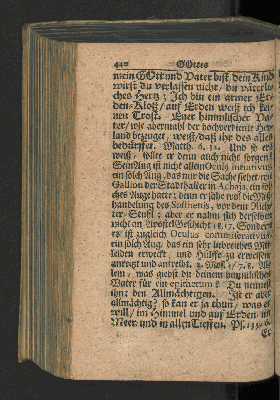 440 GOttes
mein GOtt und Vater bist, dein Kind
wirst du verlassen nicht, du väterli-
ches Hertz; Ich bin ein armer Er-
den-Kloß, auf Erden weiß ich kei-
nen Trost. Euer himmlischer Va-
ter, wie abermahl der hochverdiente Hey-
land bezeuget, weiß, daß ihr des alles
bedürffet. Matth. 6, 32. Und so ers
weiß, solte er denn auch nicht sorgen?
Sein Aug ist nicht allein Oculus intuitivus,
ein solch Aug, das nur die Sache siehet, wie
Gallion der Stadthalter in Achaja, ein sol-
ches Auge hatte; denn er sahe wol die Miß-
handelung des Sosthenis, vor dem Rich-
ter-Stuhl; aber er nahm sich derselben
nicht an, Apost. Geschicht. 18, 17. Sondern
es ist zugleich Oculus commiserativus,
ein solch Aug, das ein sehr liebreiches Mit-
leiden erweckt, und Hülffe zu erweisen
anreitzt und antreibt. 2. Mos. 3, 7. 8. Al-
lein, was giebst du deinem himmlischen
Vater für ein epitheton? Du nennest
ihn: den Allmächtigen. Ist er aber
allmächtig? so kan er ja thun, was er
will, im Himmel und auf Erden, im
Meer und in allen Tieffen. Ps. 135, 6.
Er